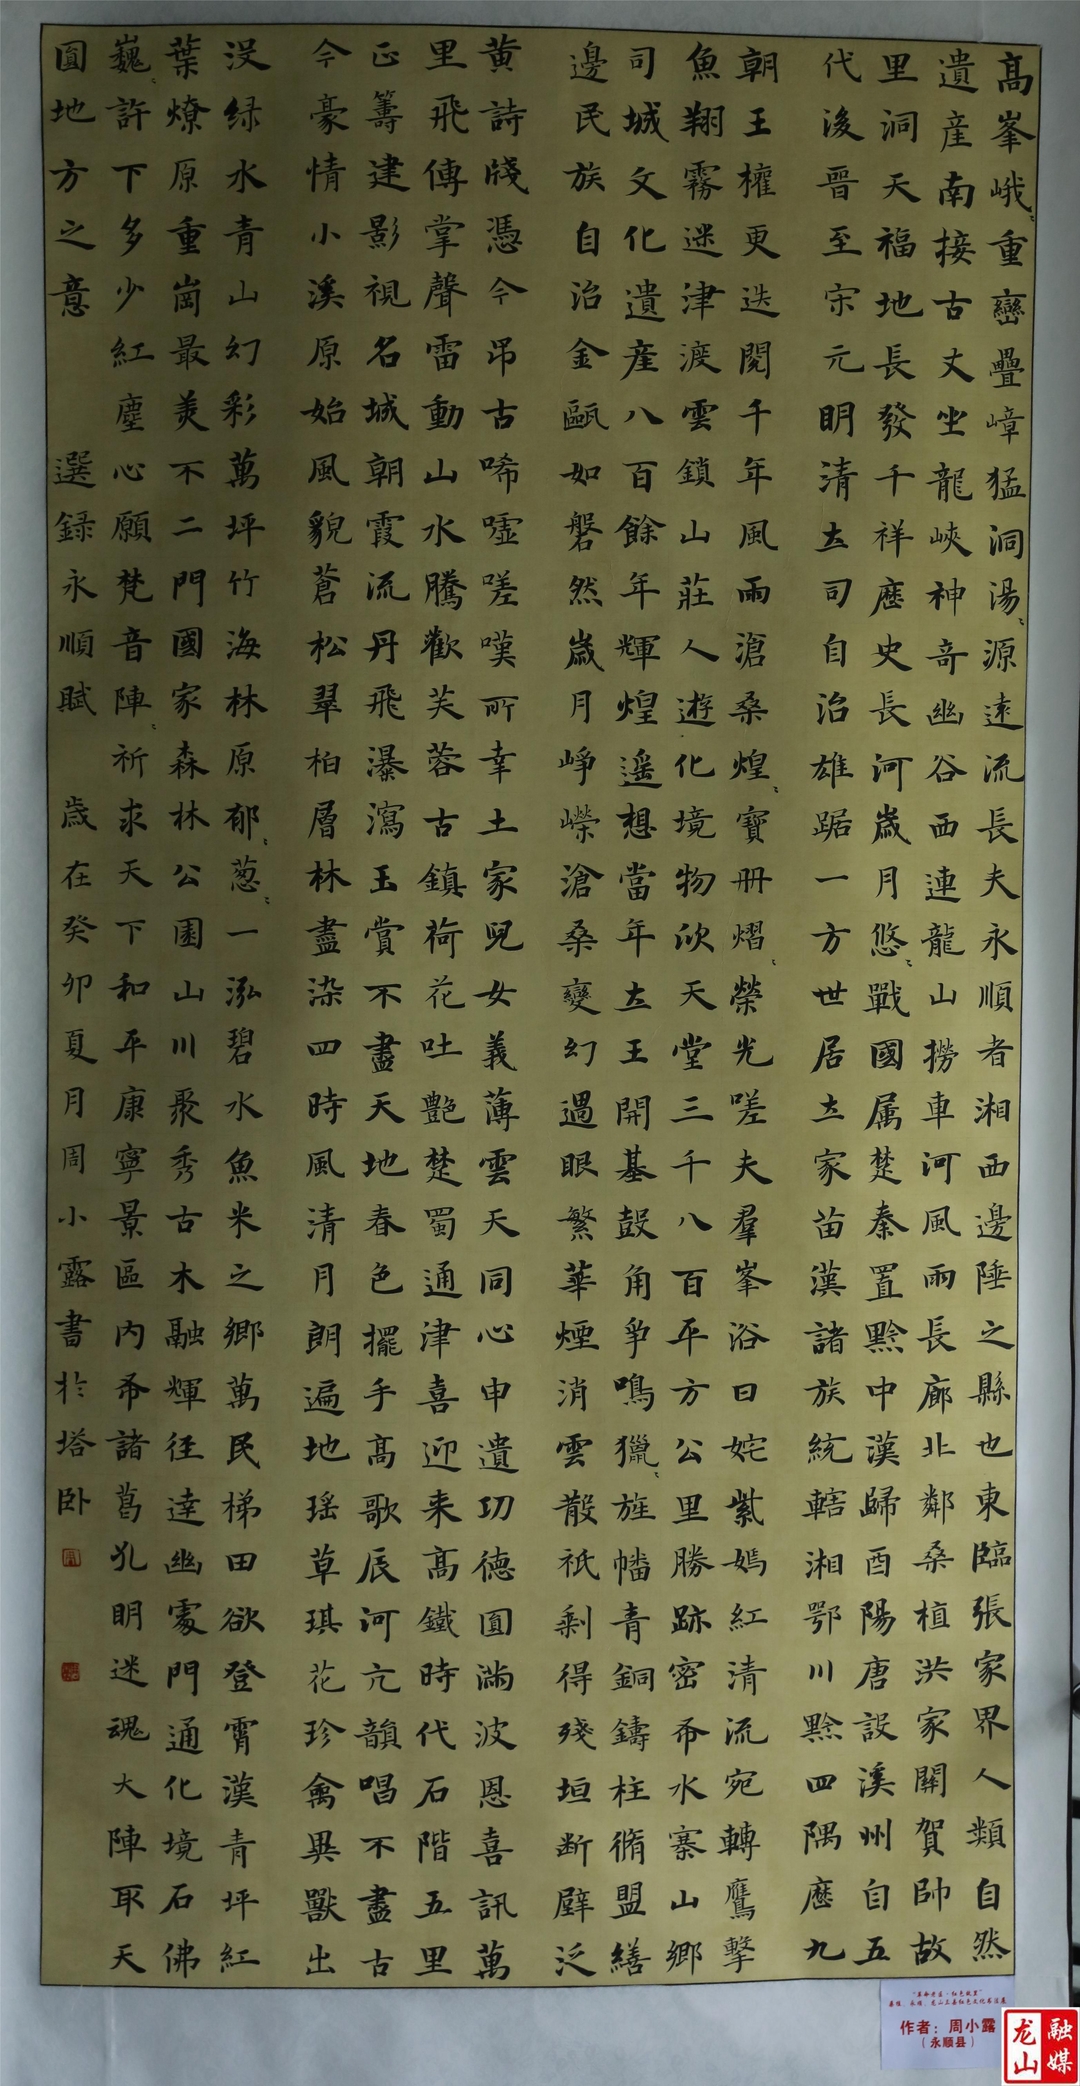 高峯峨〻重巒疊嶂猛洞湯〻源遠流長夫永順者湘西邊陲之縣也東臨張家界人類自然
遺産南接古丈坐龍峽神奇幽谷西連龍山撈車河風雨長廊北鄰桑植洪家關賀帥故
里洞天福地長發千祥歷史長河歲月悠〻戰國属楚秦置黔中漢歸酉陽唐設溪州自五
代後晋至宋元明清土司自治雄踞一方世居土家苗漢諸族統轄湘鄂川黔四隅歷九
朝王權更迭閱千年風雨滄桑煌〻寶冊熠〻榮光嗟夫羣峯浴日姹紫嫣紅清流宛轉鷹擊
魚翔霧迷津渡雲鎖山莊人遊化境物欣天堂三千八百平方公里勝跡密布水寨山鄉
司城文化遺産八百餘年輝煌遥想當年土王開基鼓角爭鳴獵〻旌幡青銅鑄柱脩盟繕
邊民族自治金甌如磐然歲月崢嶸滄桑變幻過眼繁華煙消雲散祇剩得殘垣断壁泛
黄詩牋憑今弔古唏噓嗟嘆所幸土家兒女義薄雲天同心申遺功德圓滿波恩喜訊萬
里飛傳掌聲雷動山水騰歡芙蓉古鎮荷花吐艷楚蜀通津喜迎来高鐵時代石階五里
正籌建影視名城朝霞流丹飛瀑瀉玉賞不盡天地春色擺手高歌辰河亢韻唱不盡古
今豪情小溪原始風貌蒼松翠柏層林盡染四時風清月朗遍地瑶草琪花珍禽異獸出
没緑水青山幻彩萬坪竹海林原郁〻葱〻一泓碧水魚米之鄉萬民梯田欲登霄漢青坪紅
葉燎原重崗最美不二門國家森林公園山川聚秀古木融輝徑達幽處門通化境石佛
巍〻許下多少紅塵心願梵音陣〻祈求天下和平康寧景區内布諸葛孔明迷魂大陣取天
圓地方之意 選録永順賦 歲在癸卯夏月周小露書於塔卧
作者：周小露
（永順县）
龙山
融媒